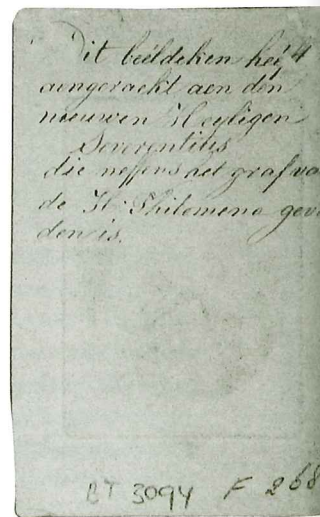 Dit beeldeken heeft
aengeraekt aen den
nieuwen Heyligen
Severentilis
die neffens het graf va
de H. Philomena gev
den is.
BT 3094 F 268